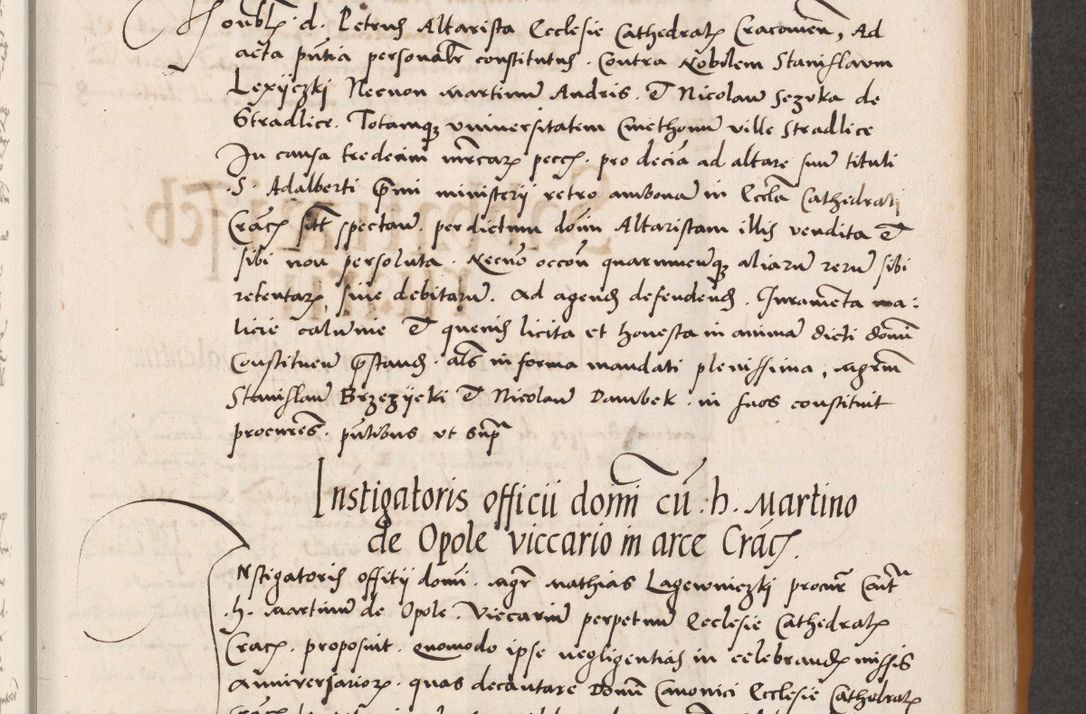 Honobl d. Petrus Altarista Ecclesie Cathedral Cracovien, Ad
acta pntia personalr constitutus. Contra Nobilem Stanislaum
Lexÿczki Necnon Martinum Andris. Et Nicolaum Sezvka de
Stradlice. Totamqз universitatem Cmethonum ville Stradlice
In causa tredecim mrcar pecc. pro decia ad altare suum tituli
S. Adalberti pmi ministerij retro ambonam in Eccla Cathedrali
Crac sitt spectan. per dictum domi Altaristam illis vendita Et
sibi non persoluta. Necno occon quarumcunqз aliarum rerum sibi
retentar, sive debitarum. Ad agend defendend. Iuramenta ma:
licie calumne Et quenis licita et honesta in animam dicti domi
Constituen pstand. als in forma mandati plenissima, Mgrm
Stanislaum Brzezÿcki Et Nicolaum Dambek. in suos constituit
procures. pntibus ut supra
Instigatoris officii domi cu h. Martino
de Opole viccario in arce Crac.
Instigatoris offitii domi. Mgr Mathias Lagewniczki procur Cont
h. Martinum de Opole. Viccarium perpetuum Ecclesie Cathedral
Crac. proposuit. Quomodo ipse negligentias in celebrand missis
Anniversarior. quas decantare Domi Canonici Ecclesie Cathedral